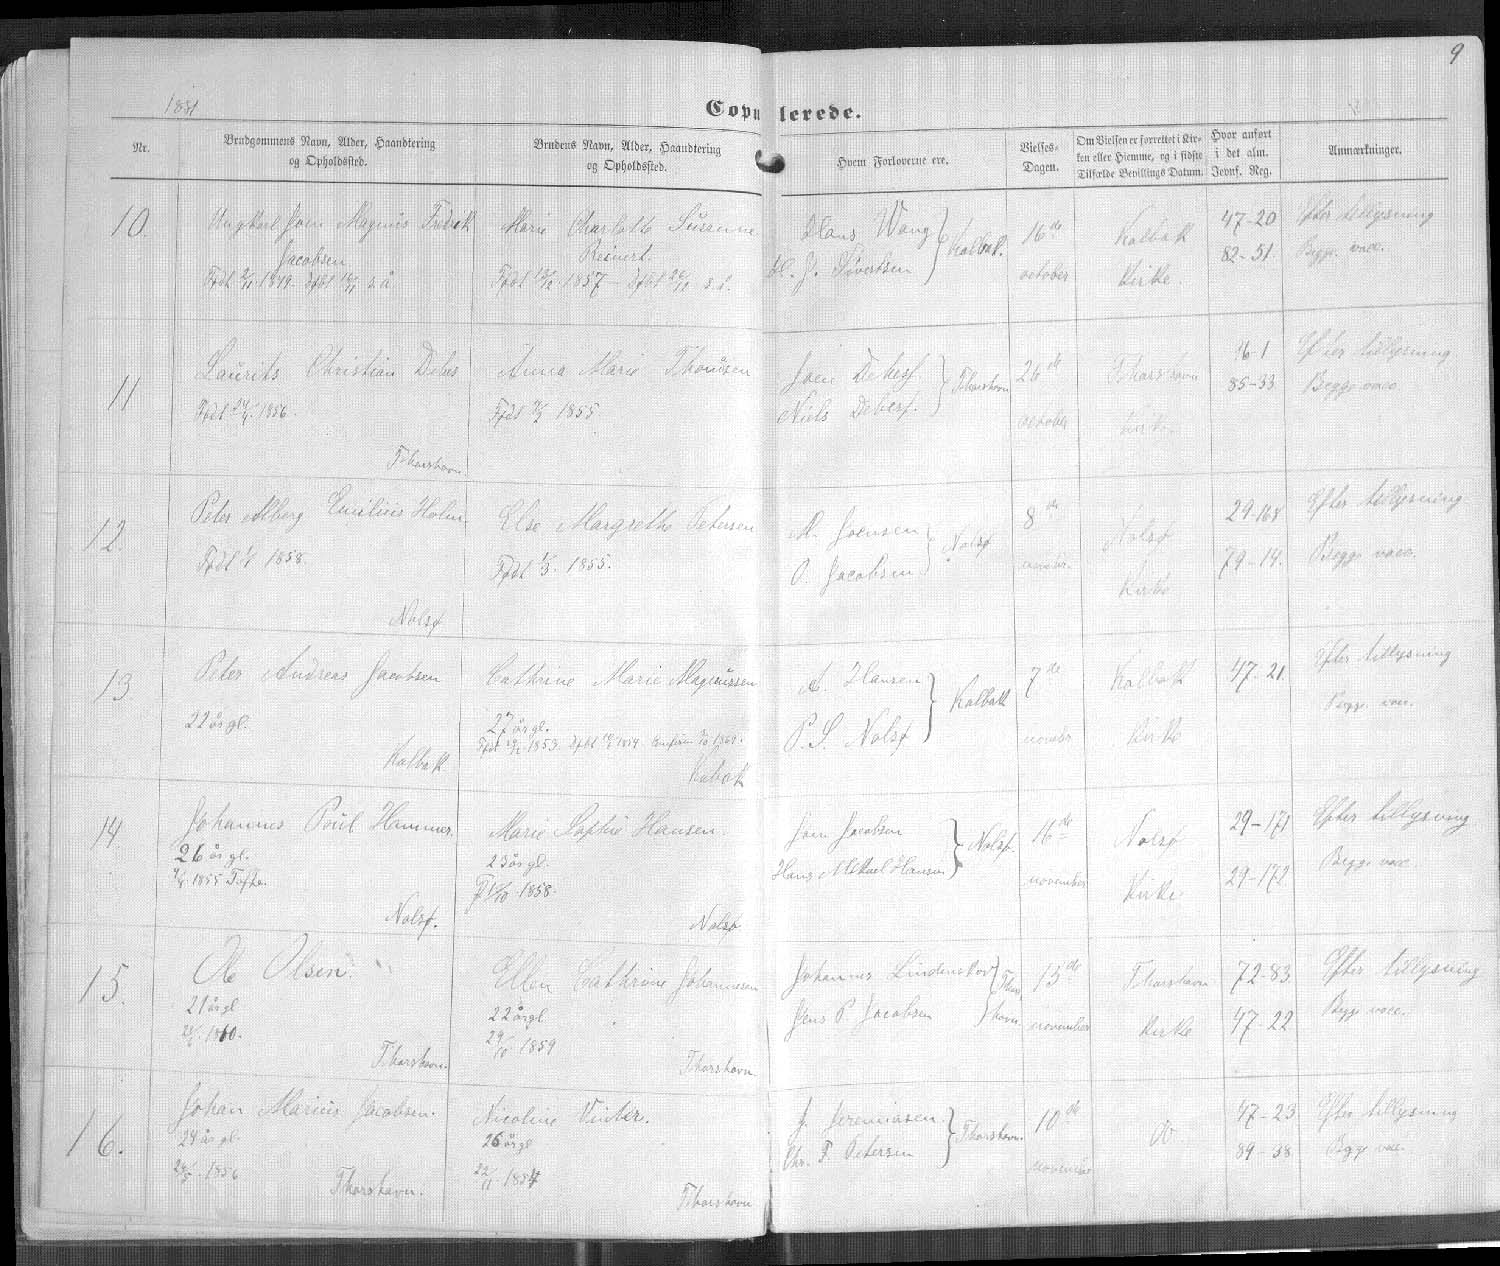 9
1881
Copulerede.
Nr.
Brudgommens Navn, Alder, Haandtering
og Opholdssted.
Brudens Navn, Alder, Haandtering
og Opholdssted.
Hvem Forloverne ere.
Vielses-
Dagen.
Om Vielsen er forrettet i Kir-
ken eller Hjemme, og i sidste
Tilfælde Bevillings Datum.
Hvor anført
i det alm.
Jevnf. Reg.
Anmærkninger.
10.
Ungkarl Joen Magnus Fridrik
Jacobsen
Født 2/11 1849
Marie Charlotte Susanne
Reinert.
1857
Hans Wang
J. Sivertsen
Kolbak.
16de
october
Kolbak
Kirke.
47-20
82-51.
Efter tillysning
Begge vacc.
11
Laurits Christian Debes
1856.
Thorshavn.
Anna Marie Thomsen
1855.
Joen Debess.
Niels Debess.
Thorshavn
26de
october
Thorshavn
Kirke.
16-1
85-33
Efter tillysning
Begge vacc.
12.
Peter Alberg Emilius Holm
1858.
Nolsø
Else Margrethe Petersen
1855.
M. Joensen
O. Jacobsen
Nolsø
8de
november.
Nolsø
Kirke
29-168
79-14.
Efter tillysning
Begge vacc.
13
Peter Andreas Jacobsen
22 årgl.
Kolbak
Cathrine Marie Magnussen
27 årgl.
1853.
Kolbak
A. Hansen
P. S. Nolsø
Kolbak
7de
november
Kolbak
Kirke
47-21.
Efter tillysning
Begge vacc.
14.
Johannes Poul Hammer.
26 årgl.
1855 Tofte.
Nolsø.
Marie Sophie Hansen.
23 årgl.
1858.
Nolsø
Joen Jacobsen
Hans Mikael Hansen
Nolsø.
16de
november
Nolsø
Kirke
29-171
29-172.
Efter tillysning
Begge vacc.
15.
Ole Olsen.
21 årgl
1860.
Thorshavn.
Ellen Cathrine Johannesen
22 årgl
29/10 1859
Thorshavn.
Johannes Lindenskov
Jens P. Jacobsen
Thors
havn
15de
november
Thorshavn
Kirke
72-83.
47-22
Efter tillysning
Begge vacc.
16.
Johan Marius Jacobsen.
24 årgl.
1856
Thorshavn.
Nicoline Vinter.
26 årgl
22/11 1854
Thorshavn
J. Jeremiasen
Chr. F. Petersen
Thorshavn.
10de
november
Do
47-23
89-38
Efter tillysning
Begge vacc.